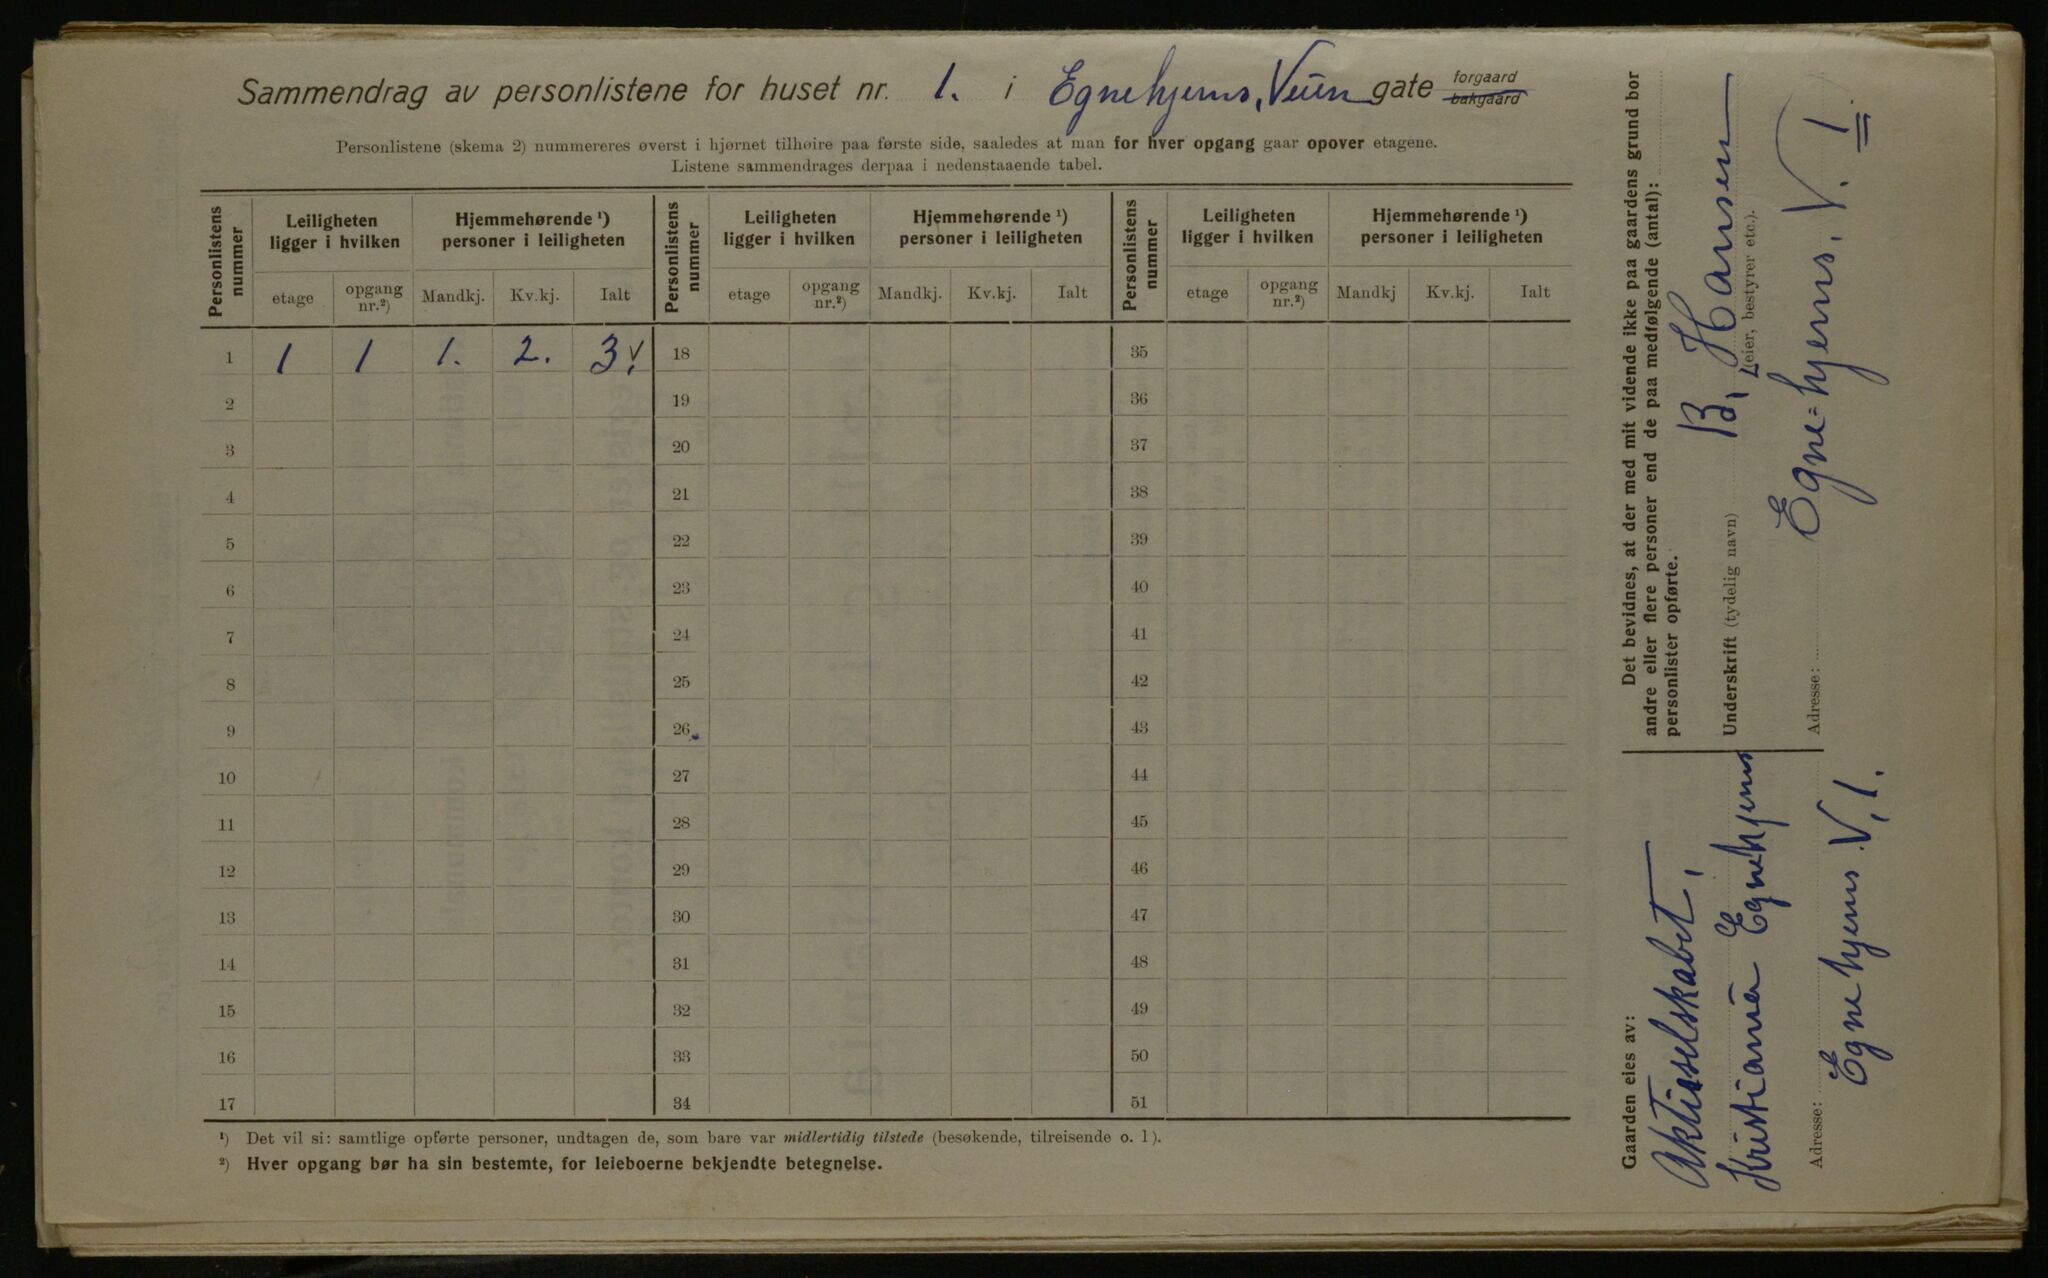 Sammendrag av personlistene for huset nr. 1. i Egnehjems, Veien gate forgaard bakgaard
Personlistene (skema 2) nummereres øverst i hjørnet tilhøire paa første side, saaledes at man for hver opgang gaar opover etagene.
Listene sammendrages derpaa i nedenstaaende tabel.
Personlistens nummer | Leiligheten ligger i hvilken | Hjemmehørende ¹) personer i leiligheten | Personlistens nummer | Leiligheten ligger i hvilken | Hjemmehørende ¹) personer i leiligheten | Personlistens nummer | Leiligheten ligger i hvilken | Hjemmehørende ¹) personer i leiligheten
etage | opgang nr.²) | Mandkj. | Kv.kj. | Ialt | etage | opgang nr.²) | Mandkj. | Kv.kj. | Ialt | etage | opgang nr.²) | Mandkj | Kv.kj. | Ialt
1 | 1 | 1 | 1. | 2. | 3. v | 18 | 35
2 | 19 | 36
3 | 20 | 37
4 | 21 | 38
5 | 22 | 39
6 | 23 | 40
7 | 24 | 41
8 | 25 | 42
9 | 26 | 43
10 | 27 | 44
11 | 28 | 45
12 | 29 | 46
13 | 30 | 47
14 | 31 | 48
15 | 32 | 49
16 | 33 | 50
17 | 34 | 51
¹) Det vil si: samtlige opførte personer, undtagen de, som bare var midlertidig tilstede (besøkende, tilreisende o. l).
²) Hver opgang bør ha sin bestemte, for leieboerne bekjendte betegnelse.
Det bevidnes, at der med mit vidende ikke paa gaardens grund bor
andre eller flere personer end de paa medfølgende (antal):
personlister opførte.
Underskrift (tydelig navn) B. Hansen
Leier, bestyrer etc.).
Adresse: Egne=hjems. V. 1
Gaarden eies av:
Aktieselskabet,
Kristiania Egnehjems
Adresse: Egnehjems V, 1.